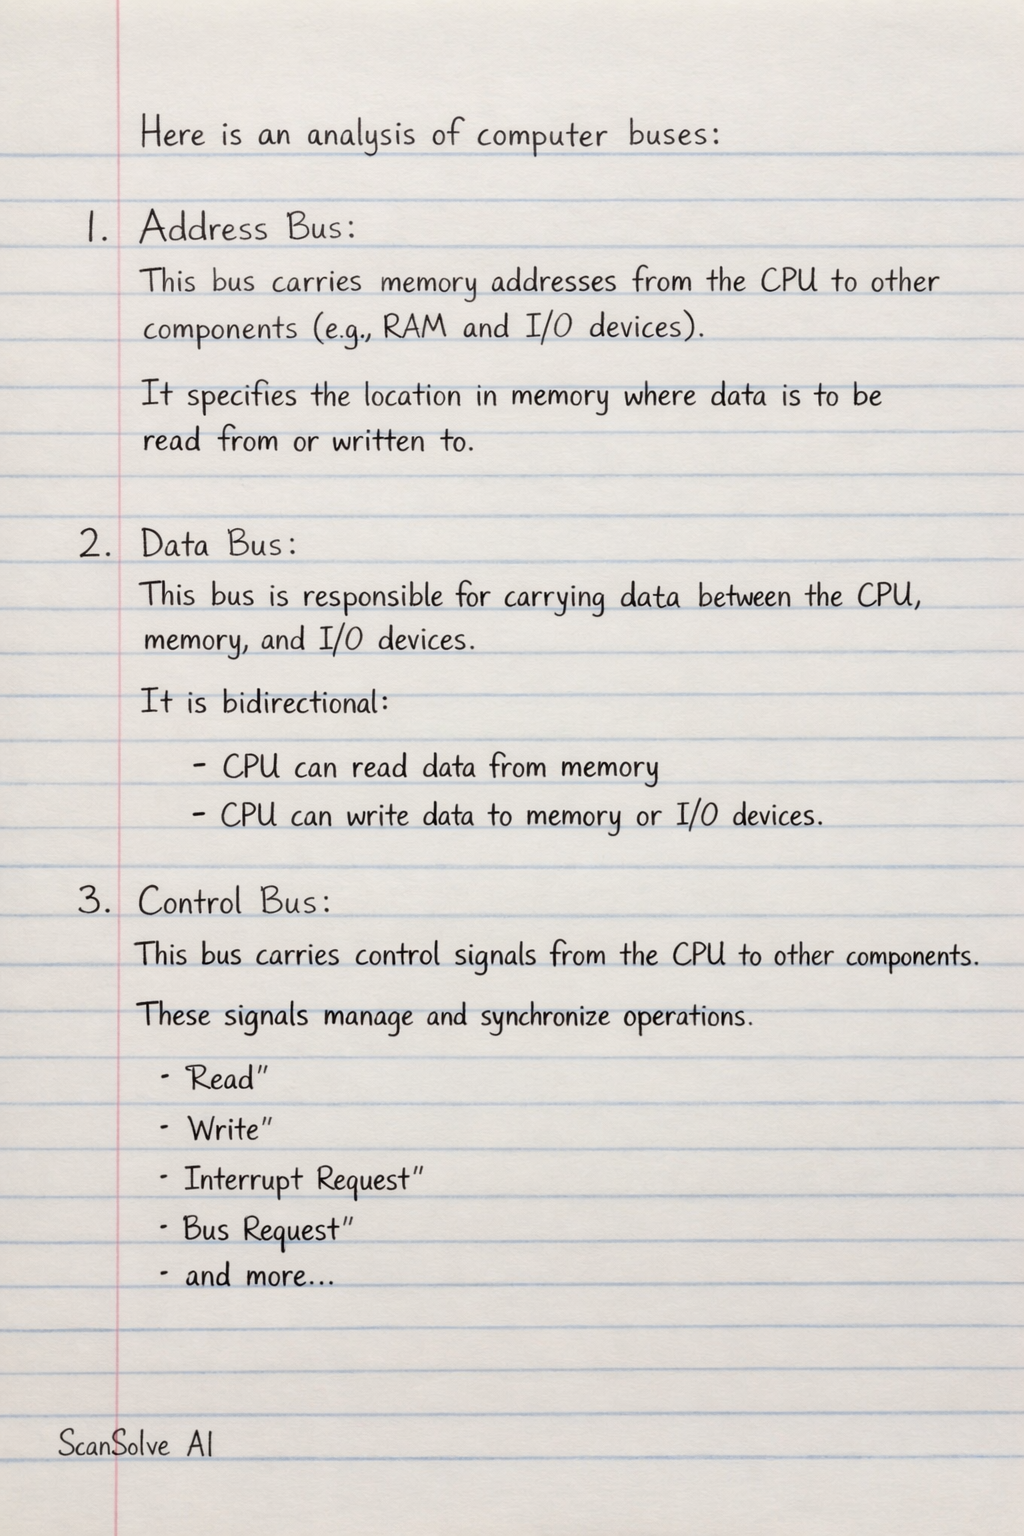 Here is an analysis of computer buses:
1. Address Bus:
This bus carries memory addresses from the CPU to other
components (e.g., RAM and I/O devices).
It specifies the location in memory where data is to be
read from or written to.
2. Data Bus:
This bus is responsible for carrying data between the CPU,
memory, and I/O devices.
It is bidirectional:
- CPU can read data from memory
- CPU can write data to memory or I/O devices.
3. Control Bus:
This bus carries control signals from the CPU to other components.
These signals manage and synchronize operations.
- Read"
- Write"
- Interrupt Request"
- Bus Request"
- and more...
ScanSolve AI